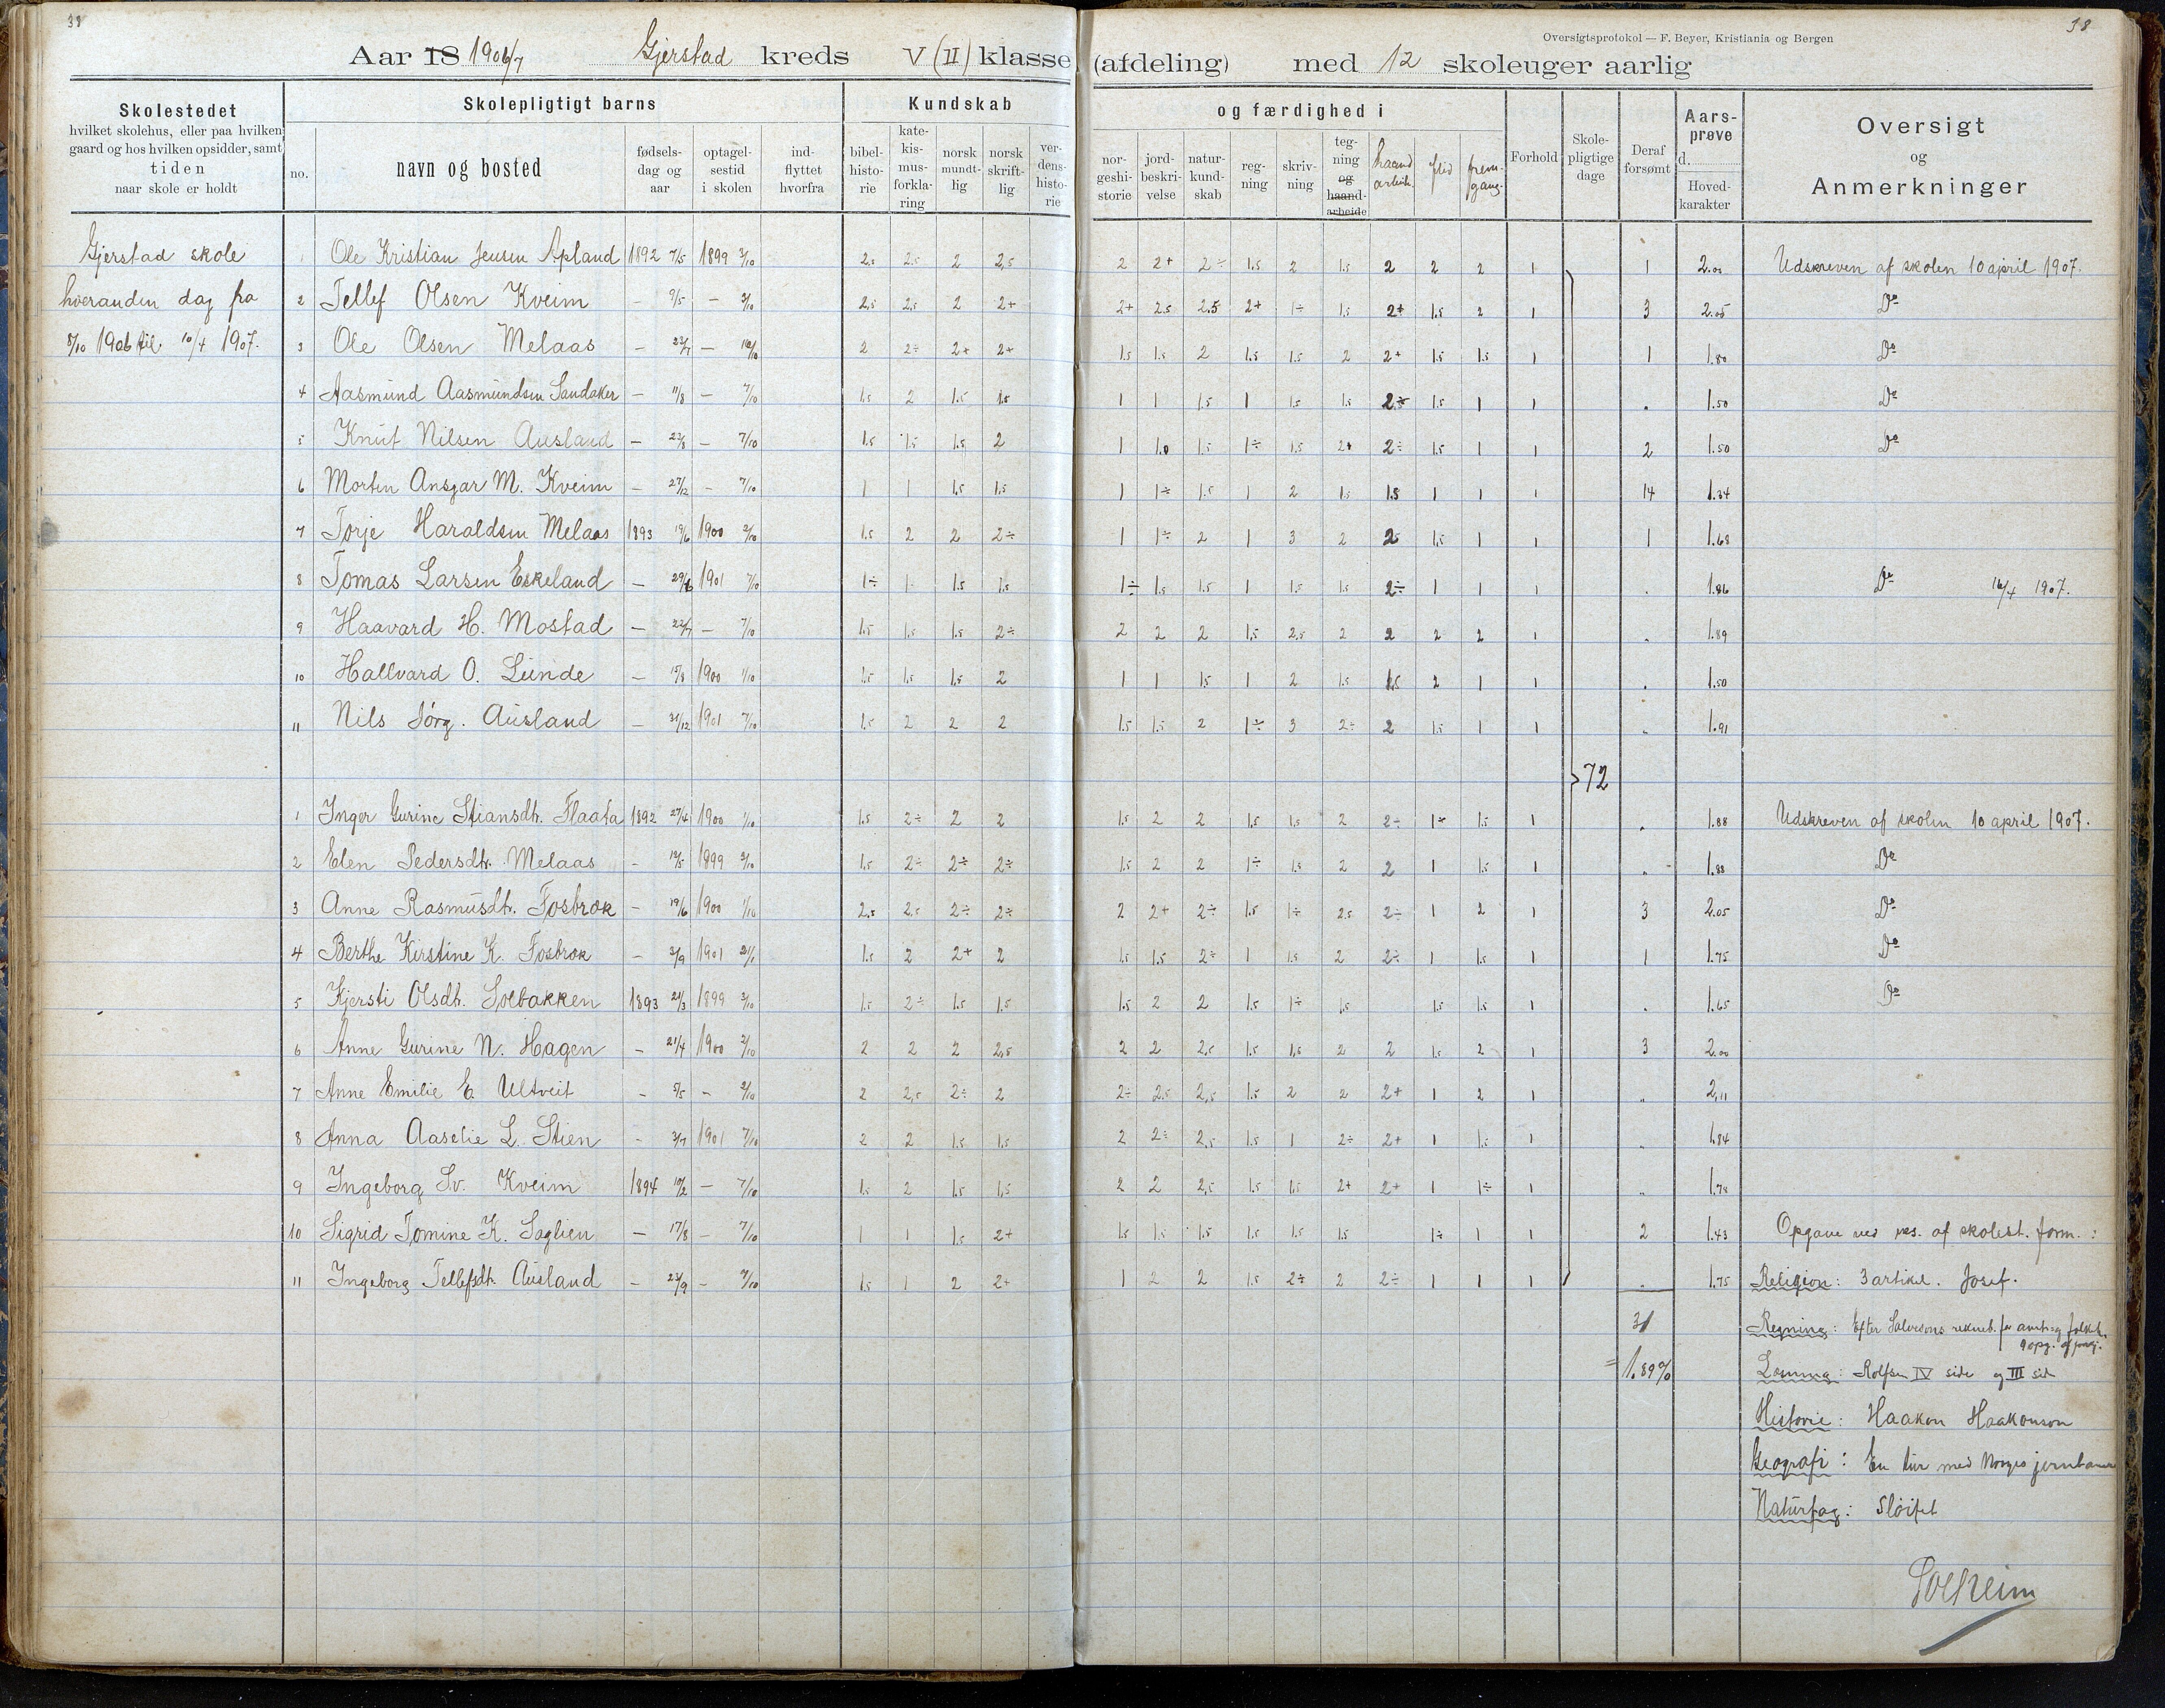 38
38
Oversigtsprotokol — F. Beyer, Kristiania og Bergen
Aar 18 1906/7 Gjerstad kreds V (II) klasse (afdeling) med 12 skoleuger aarlig
Skolestedet
hvilket skolehus, eller paa hvilken
gaard og hos hvilken opsidder, samt
tiden
naar skole er holdt
Skolepligtigt barns
no.
navn og bosted
fødsels-
dag og
aar
optagel-
sestid
i skolen
ind-
flyttet
hvorfra
Kundskab
bibel-
histo-
rie
kate-
kis-
mus-
forkla-
ring
norsk
mundt-
lig
norsk
skrift-
lig
ver-
dens-
histo-
rie
og færdighed i
nor-
geshi-
storie
jord-
beskri-
velse
natur-
kund-
skab
reg-
ning
skriv-
ning
teg-
ning
og
haand-
arbeide
haand
arbeide
flid
frem-
gang
Forhold
Skole-
pligtige
dage
Deraf
forsømt
Aars-
prøve
d.
Hoved-
karakter
Oversigt
og
Anmerkninger
Gjerstad skole
hveranden dag fra
8/10 1906 til 10/4 1907.
1 Ole Kristian Jensen Apland 1892 7/5 1899 3/10 2.5 2.5 2 2.5 2 2+ 2÷ 1.5 2 1.5 2 2 2 1 1 2.00 Udskreven af skolen 10 april 1907.
2 Tellef Olsen Kveim — 9/5 — 3/10 2.5 2.5 2 2+ 2+ 2.5 2.5 2+ 1÷ 1.5 2+ 1.5 2 1 3 2.05 Do
3 Ole Olsen Melaas — 23/7 — 2 2÷ 2+ 2+ 1.5 1.5 2 1.5 1.5 2 2+ 1.5 1.5 1 1 1.80 Do
4 Aasmund Aasmundsen Sandaker — 11/8 — 7/10 1.5 2 1.5 1.5 1 1 1.5 1 1.5 1.5 2÷ 1.5 1 1 . 1.50 Do
5 Knut Nilsen Ausland — 23/8 — 7/10 1.5 1.5 1.5 2 1 1.0 1.5 1÷ 1.5 2+ 2÷ 1.5 1 1 2 1.50 Do
6 Morten Ansgar M. Kveim — 27/12 — 7/10 1 1 1.5 1.5 1 1÷ 1.5 1 2 1.5 1.5 1 1 1 14 1.34
7 Torje Haraldsen Melaas 1893 19/6 1900 2/10 1.5 2 2 2÷ 1 1÷ 2 1 3 2 2 1.5 1 1 1 1.68
8 Tomas Larsen Eskeland — 29/6 1901 7/10 1÷ 1 1.5 1.5 1÷ 1.5 1.5 1 1.5 1.5 2÷ 1 1 1 . 1.86 Do 16/4 1907.
9 Haavard H. Mostad — 22/7 — 7/10 1.5 1.5 1.5 2÷ 2 2 2 1.5 2.5 2 2 2 2 1 . 1.89
10 Hallvard O. Lunde — 15/8 1900 1/10 1.5 1.5 1.5 2 1 1 1.5 1 2 1.5 1.5 2 1 1 . 1.50
11 Nils Jörg. Ausland — 31/12 1901 7/10 1.5 2 2 2 1.5 1.5 2 1÷ 3 2÷ 2 1.5 1 1 . 1.91
72
1 Inger Gurine Stiansdt. Flaata 1892 27/4 1900 1/10 1.5 2÷ 2 2 1.5 2 2 1.5 1.5 2 2÷ 1÷ 1.5 1 . 1.88 Udskreven af skolen 10 april 1907.
2 Elen Pedersdtr. Melaas — 1899 3/10 1.5 2÷ 2÷ 2÷ 1.5 2 2 1÷ 1.5 2 2 1 1.5 1 . 1.88 Do
3 Anne Rasmusdt. Fosbrok — 19/6 1900 1/10 2.5 2.5 2÷ 2÷ 2 2+ 2÷ 1.5 1÷ 2.5 2÷ 1 2 1 3 2.05 Do
4 Berthe Kirstine K. Fosbrok — 3/9 1901 21/1 1.5 2 2+ 2 1.5 1.5 2÷ 1 1.5 2 2÷ 1 1.5 1 1 1.75 Do
5 Kjersti Olsdt. Solbakken 1893 21/3 1899 3/10 1.5 2÷ 1.5 1.5 1.5 2 2 1.5 1÷ 1.5 1.5 1.5 1 . 1.65 Do
6 Anne Gurine N. Hagen — 21/4 1900 2/10 2 2 2 2.5 2 2 2.5 1.5 1.5 2 2 1.5 2 1 3 2.00
7 Anne Emilie E. Ultveit — 5/5 — 2/10 2 2.5 2÷ 2 2÷ 2.5 2.5 1.5 2 2 2+ 1 2 1 „ 2.11
8 Anna Aaselie L. Stien — 3/7 1901 7/10 2 2 1.5 1.5 2 2÷ 2.5 1.5 1 2÷ 2+ 1 1.5 1 „ 1.84
9 Ingeborg Sv. Kveim 1894 10/2 — 7/10 1.5 2 1.5 1.5 2 2 2.5 1.5 1.5 2+ 2+ 1 1÷ 1 „ 1.78
10 Sigrid Tomine K. Saglien — 17/8 — 7/10 1 1 1.5 2+ 1.5 1.5 1.5 1.5 1.5 1.5 1÷ 1 1 2 1.43 Opgave ved af skolest. form.:
11 Ingeborg Tellefsdt. Ausland — 23/9 — 7/10 1.5 1 2 2+ 1 2 2 1.5 2÷ 2 2÷ 1 1 1 . 1.75 Religion: 3 artikel. Josef.
31 Regning: Efter Salvesons
= 1.89% Læsning: Rolfsen IV side og III sid
Historie: Haakon Haakonson
Geografi: En tur med Norges jernbaner
Naturfag: Sløifet
Solheim